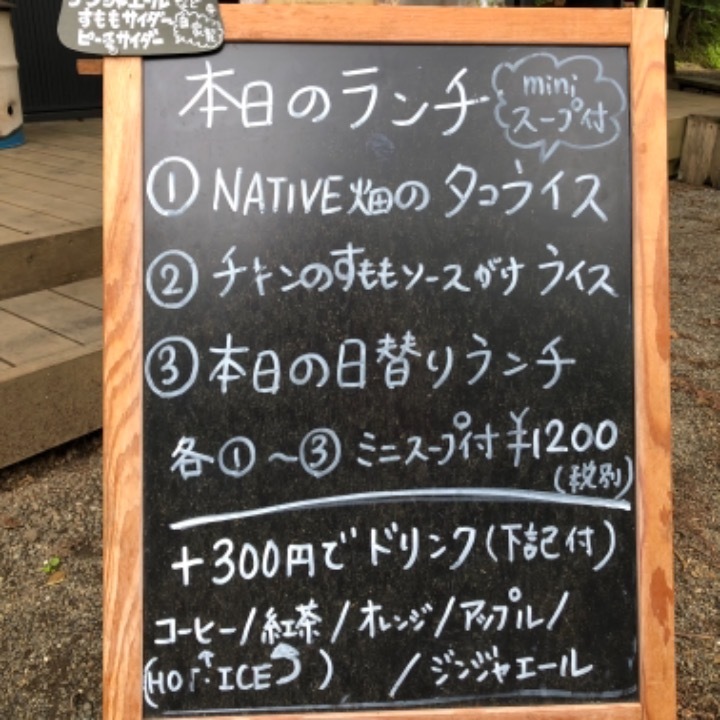 ジンジャエール
すももサイダー
ピーチサイダー
本日のランチ
mini
スープ付
① NATIVE畑の タコライス
② チキンのすももソースがけ ライス
③ 本日の日替りランチ
各①～③ ミニスープ付 ¥1200
(税別)
+300円で ドリンク(下記付)
コーヒー/紅茶/オレンジ/アップル/
(HOT・ICE) /ジンジャエール